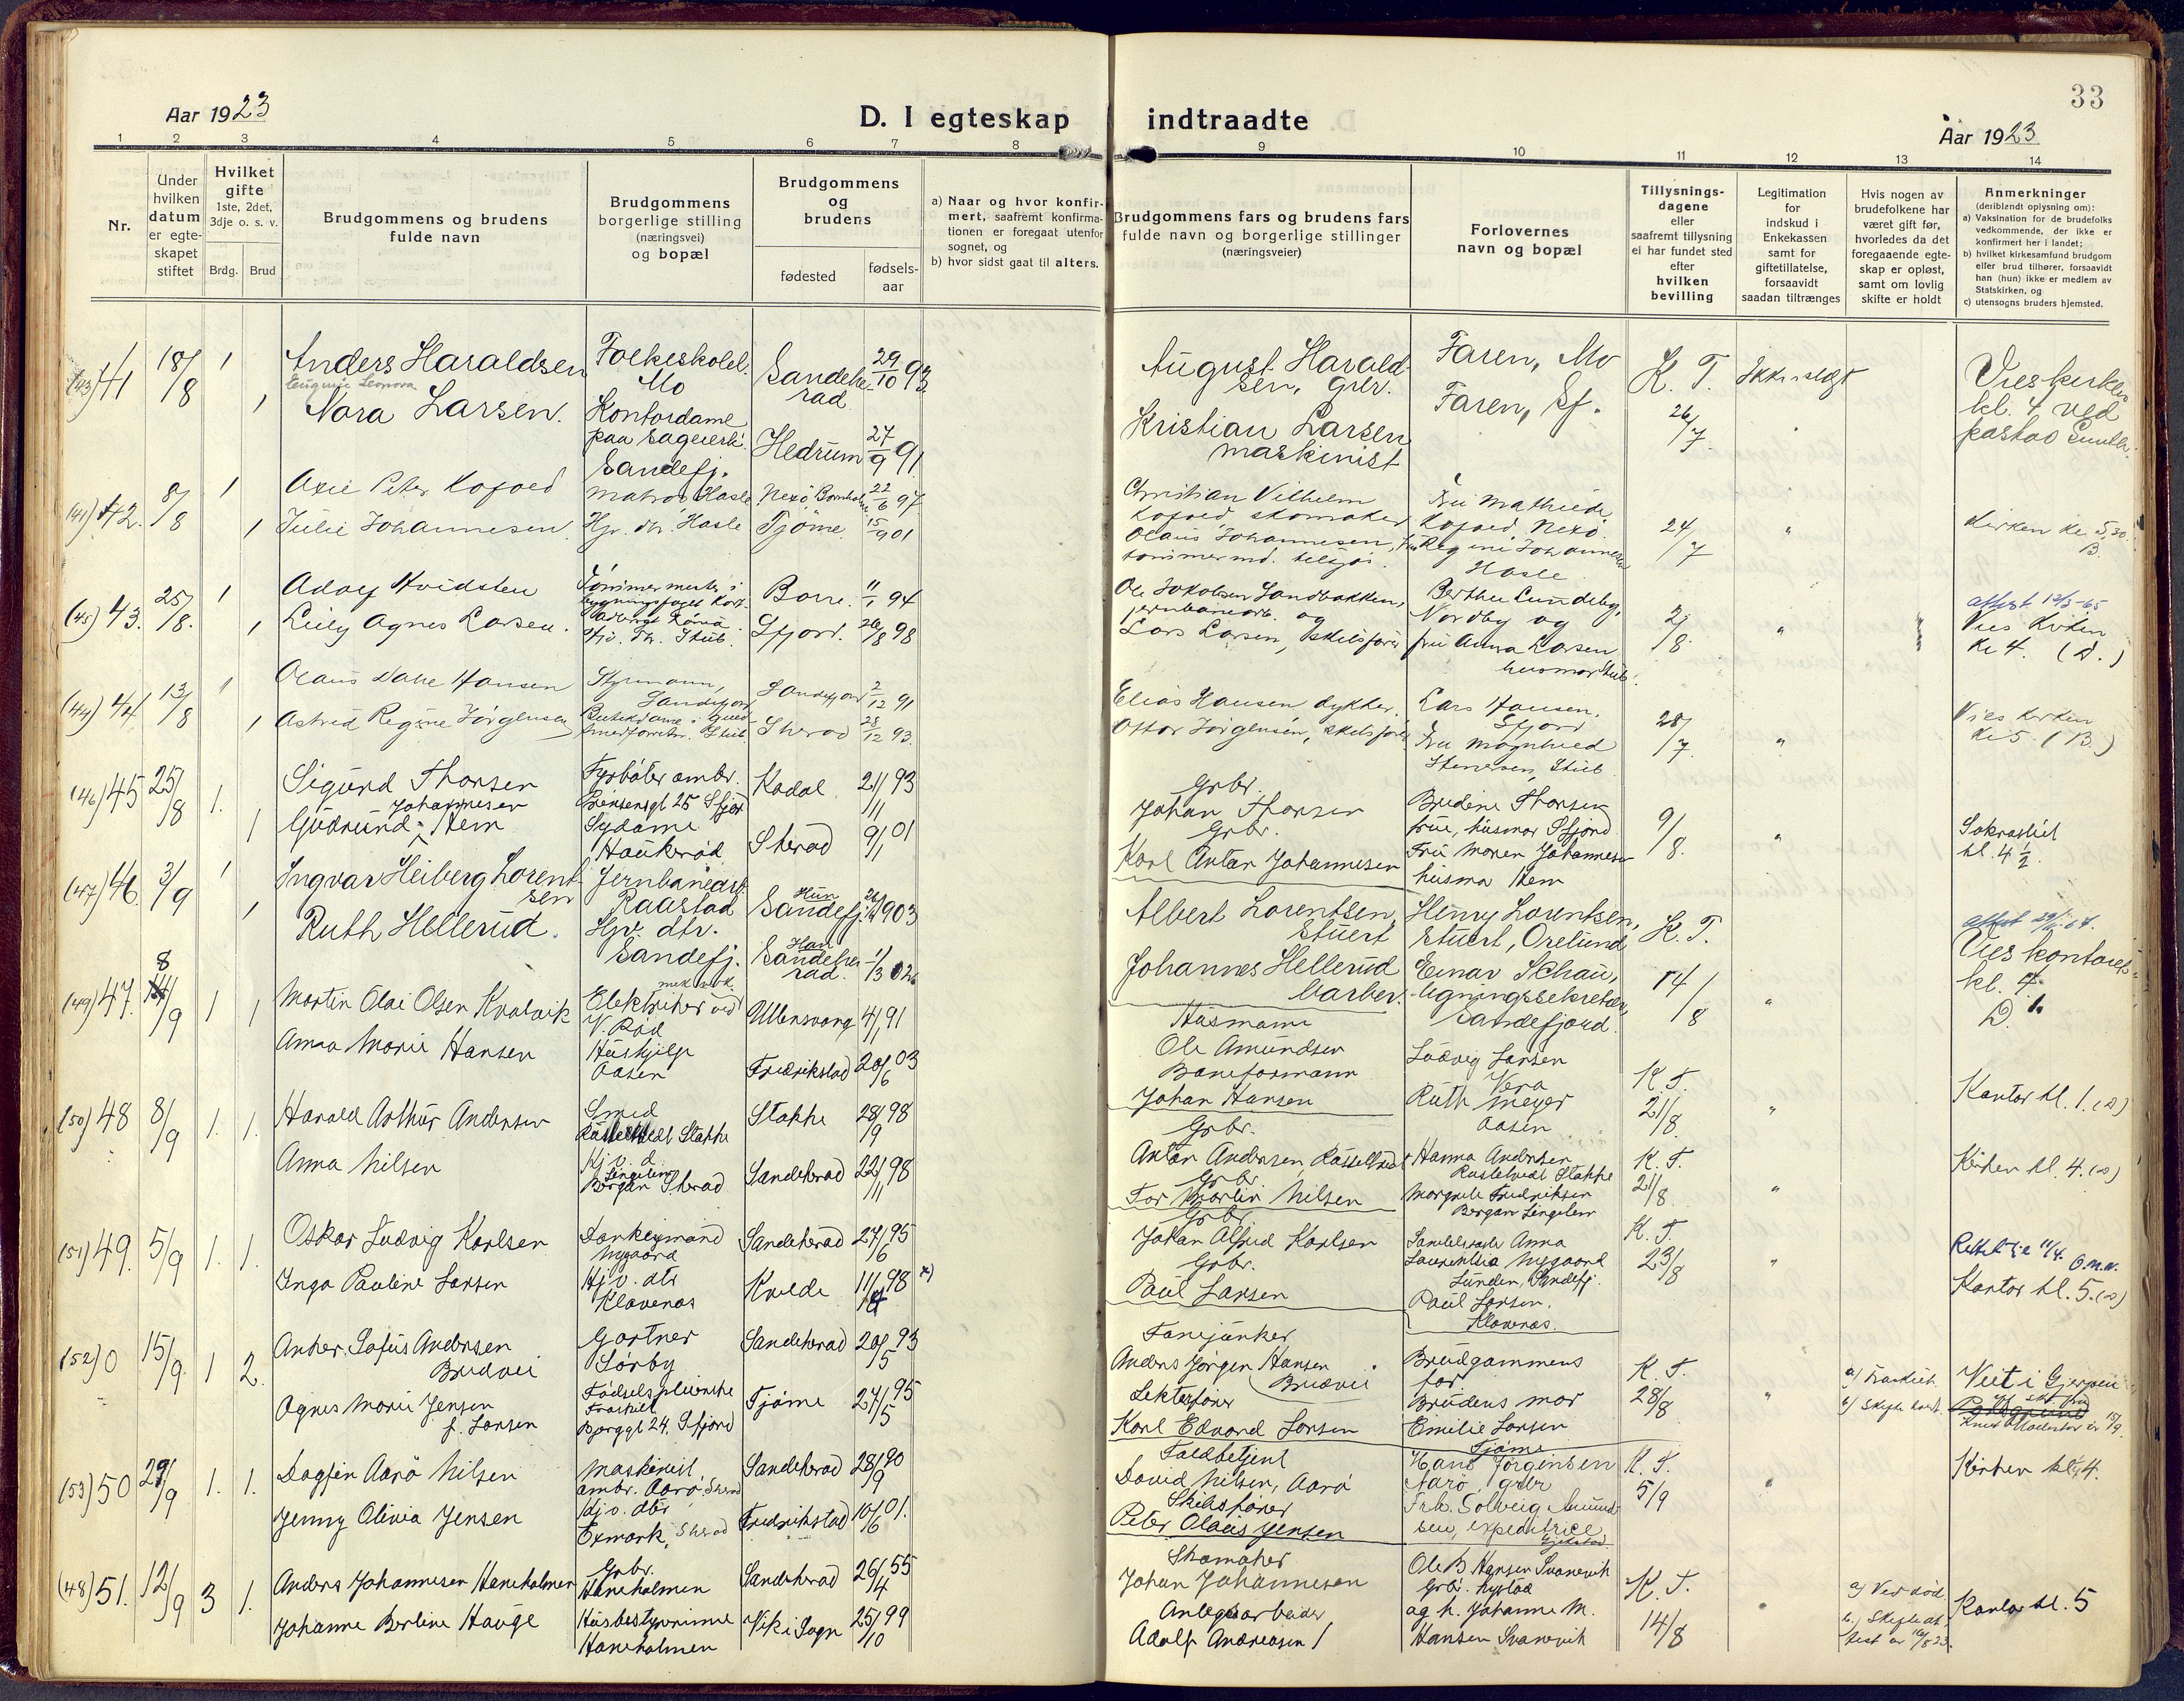 33
Aar 1923
D. I egteskap indtraadte
Aar 1923
1 2 3 4 5 6 7 8 9 10 11 12 13 14
Nr.
Under hvilken datum er egteskapet stiftet
Hvilket gifte 1ste, 2det, 3dje o. s. v.
Brdg. Brud
Brudgommens og brudens fulde navn
Brudgommens borgerlige stilling (næringsvei) og bopæl
Brudgommens og brudens
fødested
fødselsaar
a) Naar og hvor konfirmert, saafremt konfirmationen er foregaat utenfor sognet, og
b) hvor sidst gaat til alters.
Brudgommens fars og brudens fars fulde navn og borgerlige stillinger (næringsveier)
Forlovernes navn og bopæl
Tillysningsdagene eller saafremt tillysning ei har fundet sted efter hvilken bevilling
Legitimation for indskud i Enkekassen samt for giftetillatelse, forsaavidt saadan tiltrænges
Hvis nogen av brudefolkene har været gift før, hvorledes da det foregaaende egteskap er opløst, samt om lovlig skifte er holdt
Anmerkninger (deriblandt oplysning om):
a) Vaksination for de brudefolks vedkommende, der ikke er konfirmert her i landet;
b) hvilket kirkesamfund brudgom eller brud tilhører, forsaavidt han (hun) ikke er medlem av Statskirken, og
c) utensogns bruders hjemsted.
(43) 41 18/8 1 Anders Haraldsen Folkeskolel. Mo Sandeherad 29/10 93 August Haraldsen, grbr. Faren, Mo K. T.
1 Nora Larsen. Kontordame Sandefj. Hedrum 27/9 91 Kristian Larsen maskinist Faren, Sf. 26/7 Vies kirken kl. 4 ved pastor
(41) 42. 8/8 1 Axel Peter Kofoed matros Hasle Nexø, Bornholm 22/6 97 Christian Vilhelm Kofoed skomaker Fru Mathilde Kofoed. Nexø. 24/7 Kirken kl. 5,30. B.
1 Julie Johannesen. Hjv. dtr. Hasle Tjøme. 15/9 01 Olaus Johannesen, tømmermd. Regine Johannesen Hasle
(45) 43. 25/8. 1 Adolf Hvidsten Tømmermester i Borre. 11/1 94 Ole Jakobsen Sandbakken, jernbanearb. og Berthe Lundeby, Nordby og 2/8 Vies Kirken kl 4. (D.)
1 Lilly Agnes Larsen. Sfjord. 26/8 98 Lars Larsen, skibsfører fru Anna Larsen husmor
(44) 44 13/8 1 Olaus Dahl Hansen Styrmann, Sandefjord Sandefjord 2/12 91 Elias Hansen dykker. Lars Hansen, Sfjord 28/7 Vies Kirken kl 5. (B.)
1 Astrid Regine Jørgensen Sherad 28/12 93. Ottar Jørgensen, skibsfører Fru
(46) 45 25/8 1. Sigurd Thorsen Fyrbøter ombr. Prinsensgt 25 Sfjor Kodal 21/11 93 Grbr. Johan Thorsen Brudine Thorsen frue, husmor Sfjord 9/8. Sakrastiet kl. 4 1/2.
1 Gudrund Johannesen Hem Sydame Haukerød Sherad 9/1 01 Grbr. Karl Anton Johannesen Fru Maren Johannesen husmor Hem
(47) 46. 3/9 1 Ingvar Heiberg Lorentsen Jernbanearb. Raastad Hun Sandefj. 903 Albert Lorentsen, stuert Henry Lorentsen, stuert, Orelund K. T.
1 Ruth Hellerud. Hjv. dtr. Sandefj. Han Sandeherad. Johannes Hellerud barber. Einar Schau, ligningssekretær, Sandefjord. 14/8 Vies kontoret kl. D.
(49) 47. 8/9 1 1 Martin Olai Olsen Kvalvik Elektriker ved mek verk. V. Rød Ullensvang 4/1 91 Husmann Ole Amundsen Ludvig Larsen Vera K. T. Kontor kl. 1. (D)
Anna Marie Hansen Hushjelp Aasen Fredrikstad 20/6 03 Baneformann Johan Hansen Ruth Meyer Aasen 21/8.
(50) 48 8/9 1. 1. Harald Arthur Andersen Smed Stokke Stokke 28/9 98 Grbr. Anton Andersen, Hanna Andersen Stokke K. T. Kirken kl. 4. (D)
Anna Nilsen Hjv. d. Bergan Sherad Sandeherad 22/11 98 Grbr. Tor Martin Nilsen Margrete Fredriksen Bergan 21/8.
(51) 49. 5/9 1. 1. Oskar Ludvig Karlsen Donkeymand Nygaard Sandeherad 27/6 95 Grbr. Johan Alfred Karlsen Anna Nygaard Lunden, Sandefj. K. T. 23/8
Inga Pauline Larsen Hjv. dtr Klavenes Kvelde 11/ 98 x) Grbr. Paul Larsen Paul Larsen. Klavenes. Kontor kl. 5. (D)
(52) 0 15/9. 1 2. Anker Sofus Andersen Bredvei Gartner Sørby Sandeherad 20/5 93 Fanejunker Anders Jørgen Hansen Bredvei Brudgommens far K. T. a) Fraskilt. Viet i Gjerpen
Agnes Marie Jensen f. Larsen Fødselspleierske Fraskilt Bjerggt 24, Sfjord Tjøme 27/5 95 Lektefører Karl Edvard Larsen Brudens mor Emilie Larsen Tjøme 28/8 b) Skifte holdt.
(53) 50 29/9 1. 1. Dagfin Aarø Nilsen Maskinist ombr. Aarø, Sherad Sandeherad 28/9 90 Toldbetjent David Nilsen, Aarø Hans Jørgensen Aarø, grbr K. T. Kirken kl. 4.
Jenny Olivia Jensen Hjv. dtr Exmark, Sherad Fredrikstad 10/6 01. Skibsfører Peter Olaus Jensen Frk. Solveig Amundsen, expeditrice 5/9
(48) 51. 12/9 3 1. Anders Johannesen Haneholmen Grbr. Haneholmen Sandeherad 26/4 55 Skomaker Johan Johannesen Ole B. Hansen Svanevik Grbr. K. T. a) Ved død. Kontor kl. 5
Johanne Berline Hauge Husbestyrerinne Haneholmen Vik i Sogn 25/10 99 Anlegsarbeider Adolf Andreasen og h. Johanne M. Hansen Svanevik 14/8 b) Skifteattest av 16/8 23.